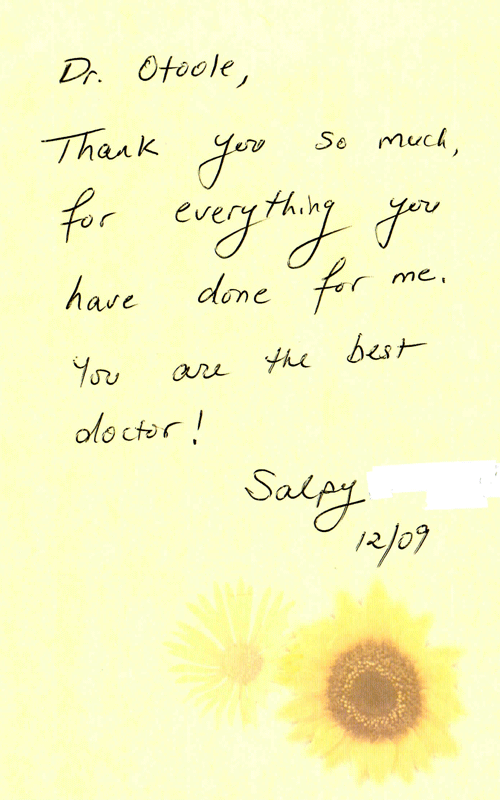 Dr. Otoole,
Thank you so much,
for everything you
have done for me.
You are the best
doctor!
Salpy
12/09